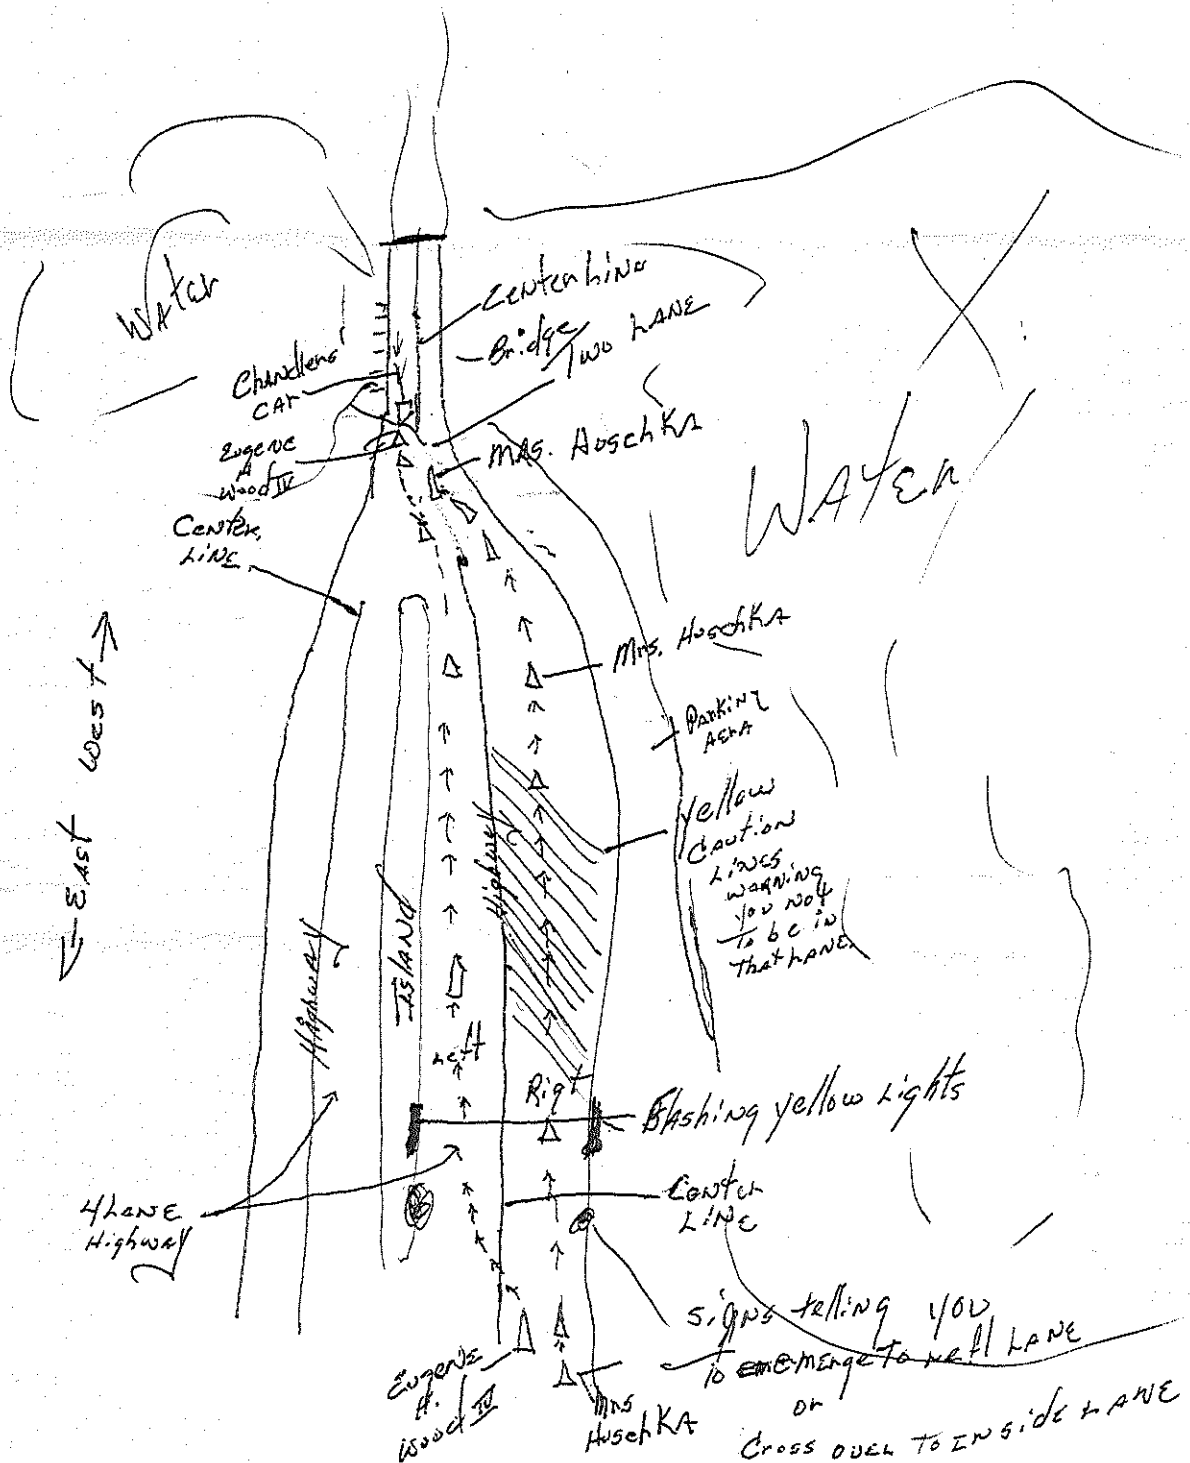 Water
Center Line
Bridge
Two LANE
Chandlers'
CAr
Eugene
H
Wood IV
MRS. HuschKA
WATEr
Center,
LiNE
Mrs. HuschKA
West
East
Parking
AErA
Yellow
CAUTiON
LiNES
WARNiNg
You Not
To be in
That LANE.
Highway
Highway
ISLAND
Left
Rigt
Flashing yellow Lights
4 LANE
Highway
Center
LiNE
Signs telling you
To merge To Left LANE
or
Cross over To INSide LANE
Eugene
H.
Wood IV
Mrs
HuschKA